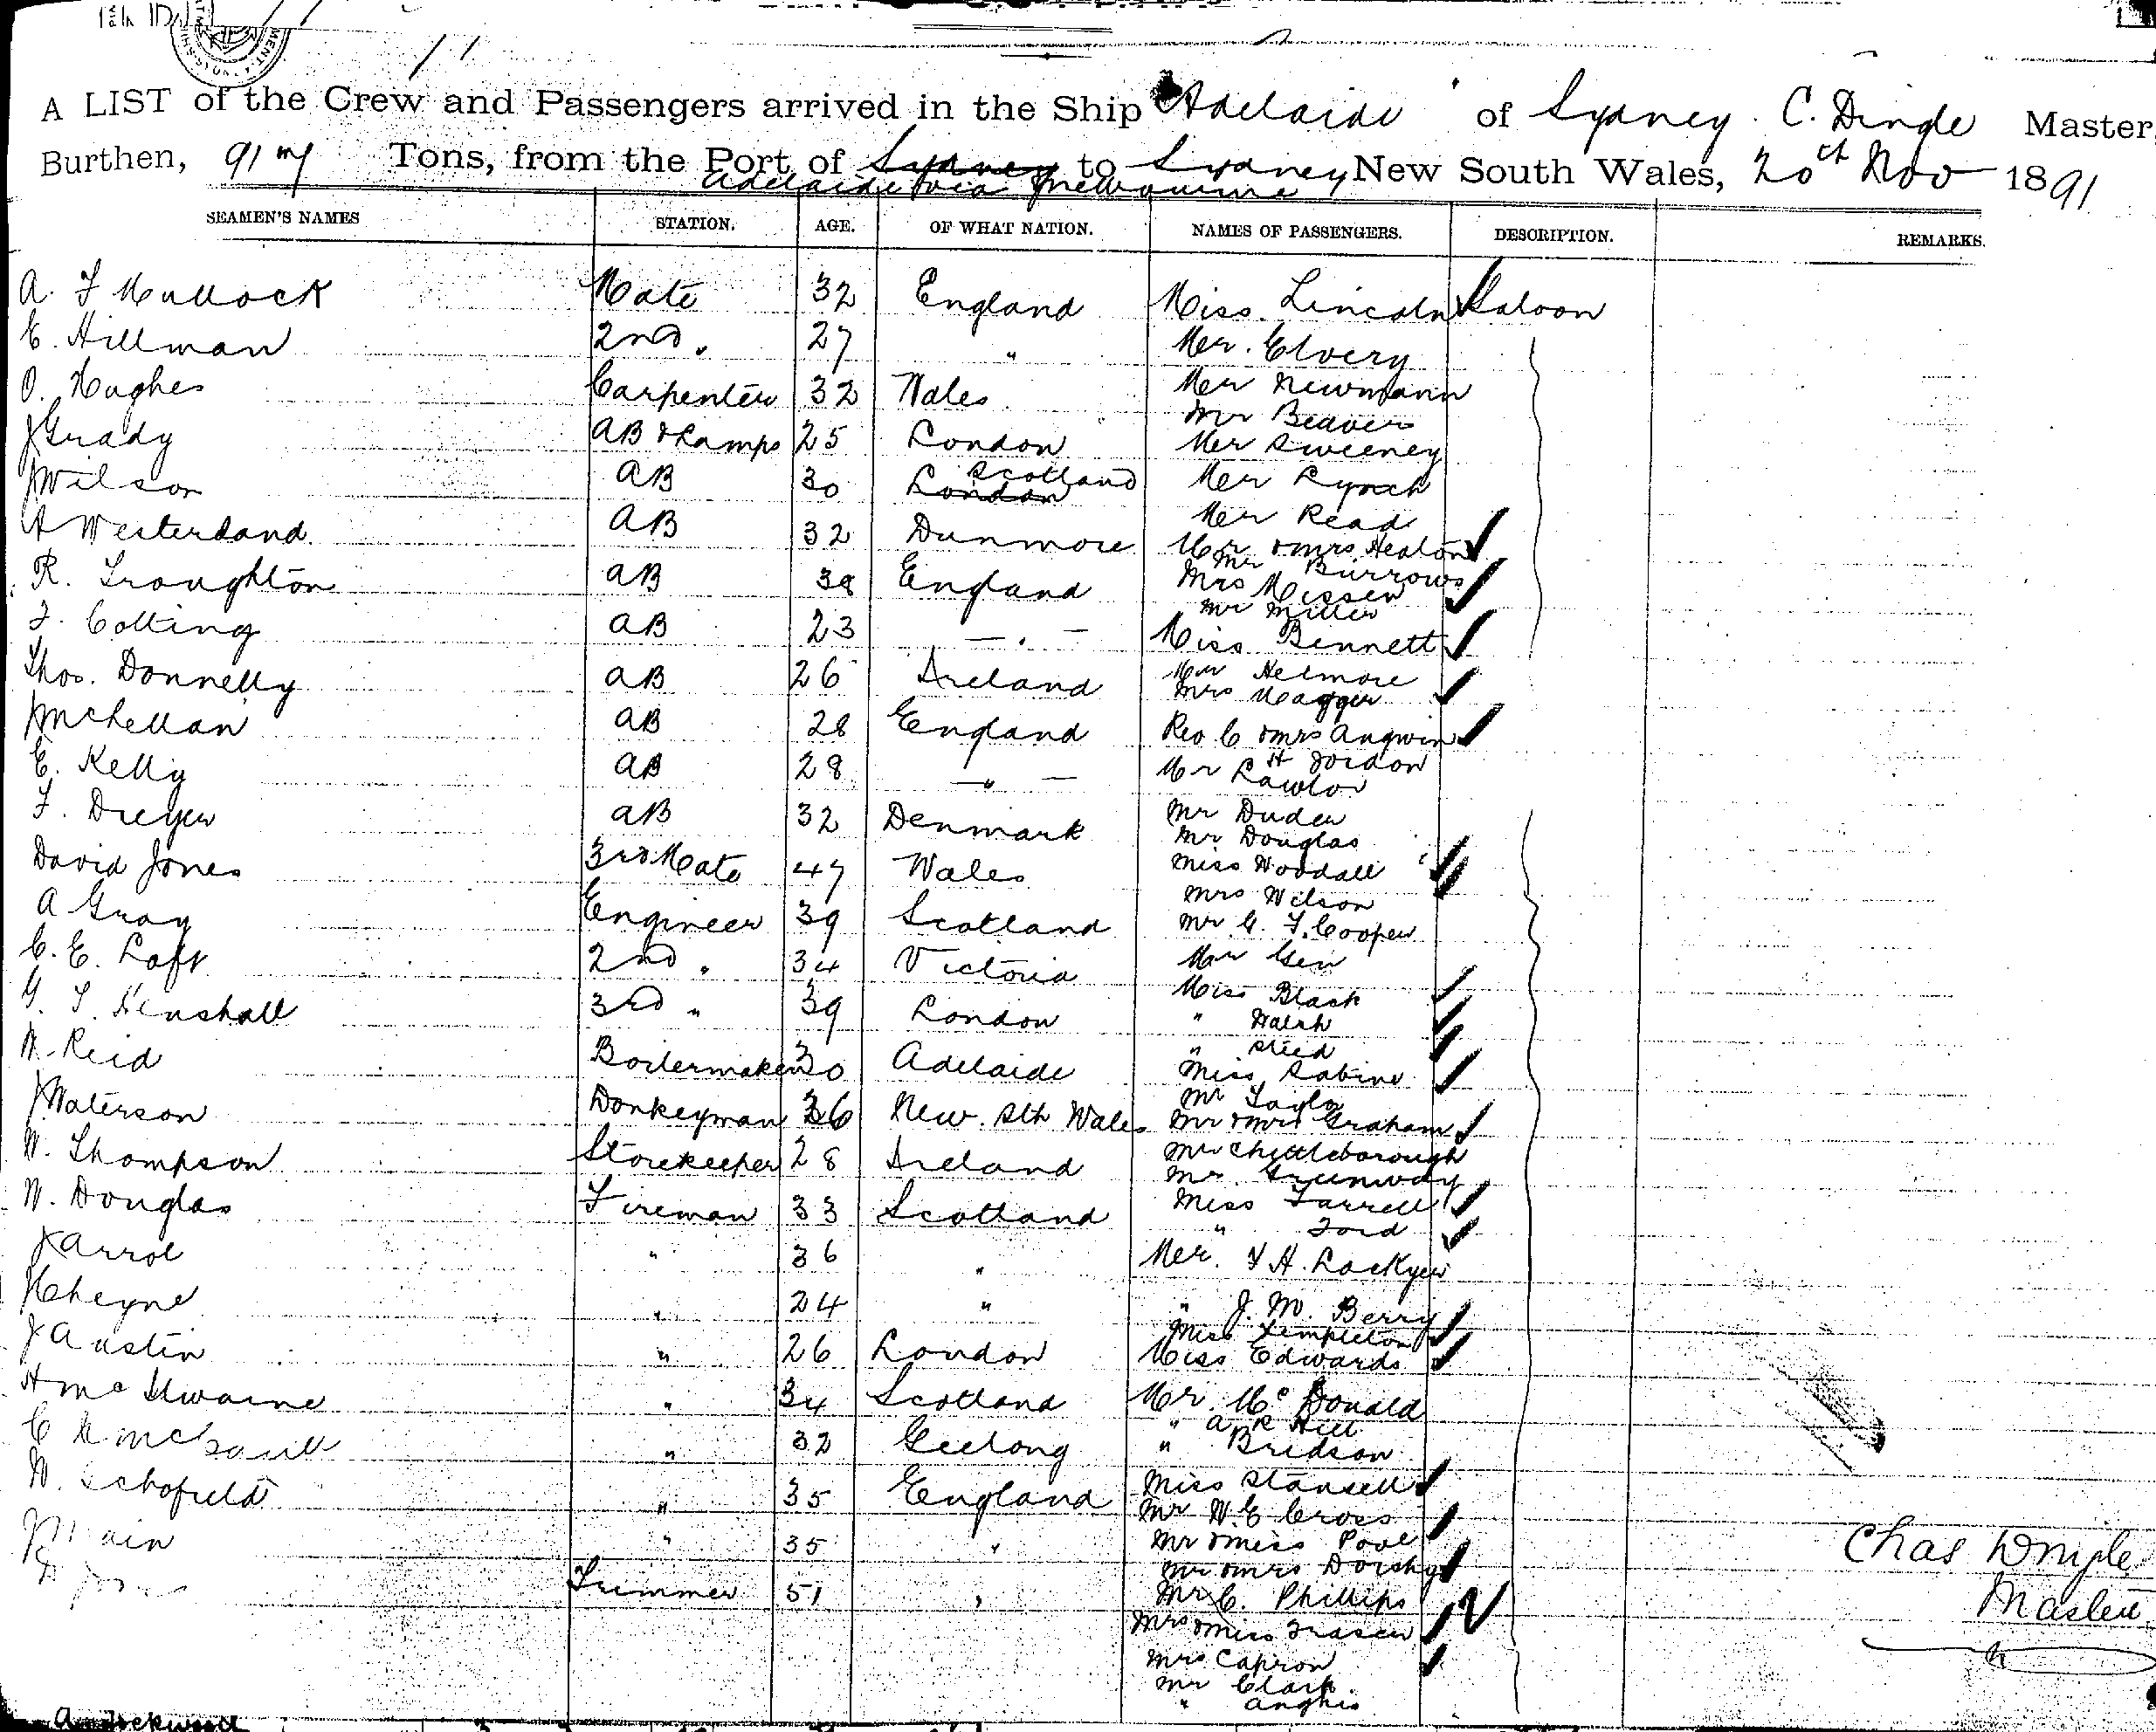 A LIST of the Crew and Passengers arrived in the Ship Adelaide of Sydney C. Dingle Master,
Burthen, 917 Tons, from the Port of Sydney to Sydney New South Wales, 20th Nov 1891
Adelaide via Melbourne
SEAMEN'S NAMES STATION. AGE. OF WHAT NATION. NAMES OF PASSENGERS. DESCRIPTION. REMARKS.
A. F Mullock Mate 32 England Miss. Lincoln Saloon
E. Hillman 2nd " 27 " Mr. Elvery
O. Hughes Carpenter 32 Wales Mr Newmann
Mr Beavers
J Grady AB & Lamps 25 London Mr Sweeney
J Wilson AB 30 London Scotland Mr Lynch
A Westerland AB 32 Dunmore Mr Read
Mr & Mrs Heaton
Mr Burrows
R. Troughton AB 38 England Mrs Missen
Mr Miller
F. Colting AB 23 — " — Miss Bennett
Thos. Donnelly AB 26 Ireland Mr Helmore
Mrs Magger
J McLellan AB 28 England Rev C & Mrs Angwin
H Jordon
E. Kelly AB 28 — " — Mr Lawlor
F. Dreyer AB 32 Denmark Mr Duder
Mr Douglas
David Jones 3rd Mate 47 Wales Miss Woodall
Mrs Wilson
A Gray Engineer 39 Scotland Mr G. F. Cooper
C. E. Loft 2nd " 34 Victoria Mr Gen
Miss Black
G. T. Henshall 3rd " 39 London " Walsh
" Steed
W. Reid Boilermaker 30 Adelaide Miss Sabine
Mr Taylor
J Waterson Donkeyman 36 New. Sth Wales Mr & Mrs Graham
W. Thompson Storekeeper 28 Ireland Mr Chettleborough
Mr Greenway
W. Douglas Fireman 33 Scotland Miss Farrell
" Ford
J Arrol " 36 " Mr. F H. Lockyer
J Cheyne " 24 " " J. M. Berry
Miss Templeton
J Austin " 26 London Miss Edwards
H McIlwaine " 34 Scotland Mr. McDonald
" A R Hill
C " 32 Geelong " Bridson
W. Schofield " 35 England Miss Stansell
Mr W. E Cross
J Main " 35 " Mr & Miss Poole
Mr & Mrs Dorshy
Jones Trimmer 51 " Mr C. Phillips
Mrs & Miss Fraser
Mrs Capron
Mr Clark
" Anghie
Chas Dingle
Master